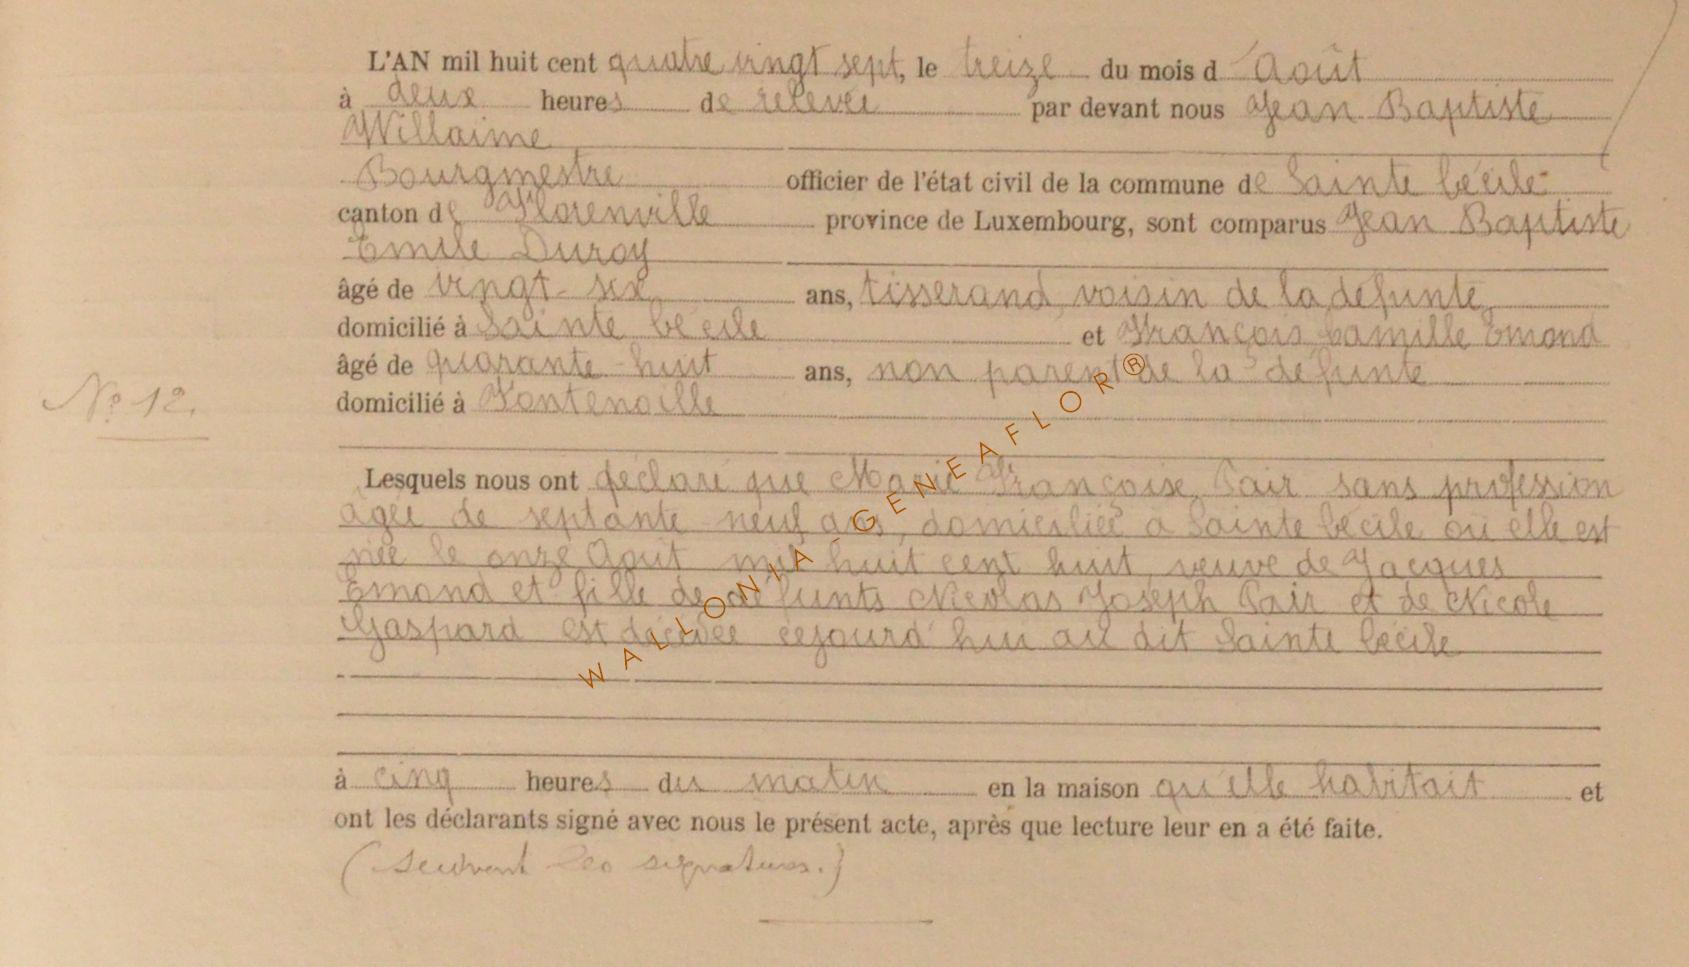 L'AN mil huit cent quatre vingt sept, le treize du mois d'Août
à deux heures de relevée par devant nous Jean Baptiste
Willaime
Bourgmestre officier de l'état civil de la commune de Sainte Cécile
canton de Florenville province de Luxembourg, sont comparus Jean Baptiste
Emile Duroy
âgé de vingt-six ans, tisserand, voisin de la défunte,
domicilié à Sainte Cécile et François Camille Emond
âgé de quarante-huit ans, non parent de la défunte
domicilié à Fontenoille
N° 12.
Lesquels nous ont déclaré que Marie Françoise Pair sans profession
âgée de septante neuf ans, domiciliée à Sainte Cécile où elle est
née le onze Août mil huit cent huit, veuve de Jacques
Emond et fille de défunts Nicolas Joseph Pair et de Nicole
Gaspard est décédée cejourd'hui au dit Sainte Cécile
à cinq heures du matin en la maison qu'elle habitait et
ont les déclarants signé avec nous le présent acte, après que lecture leur en a été faite.
(Suivent les signatures.)
WALLONIA-GENEAFLOR®